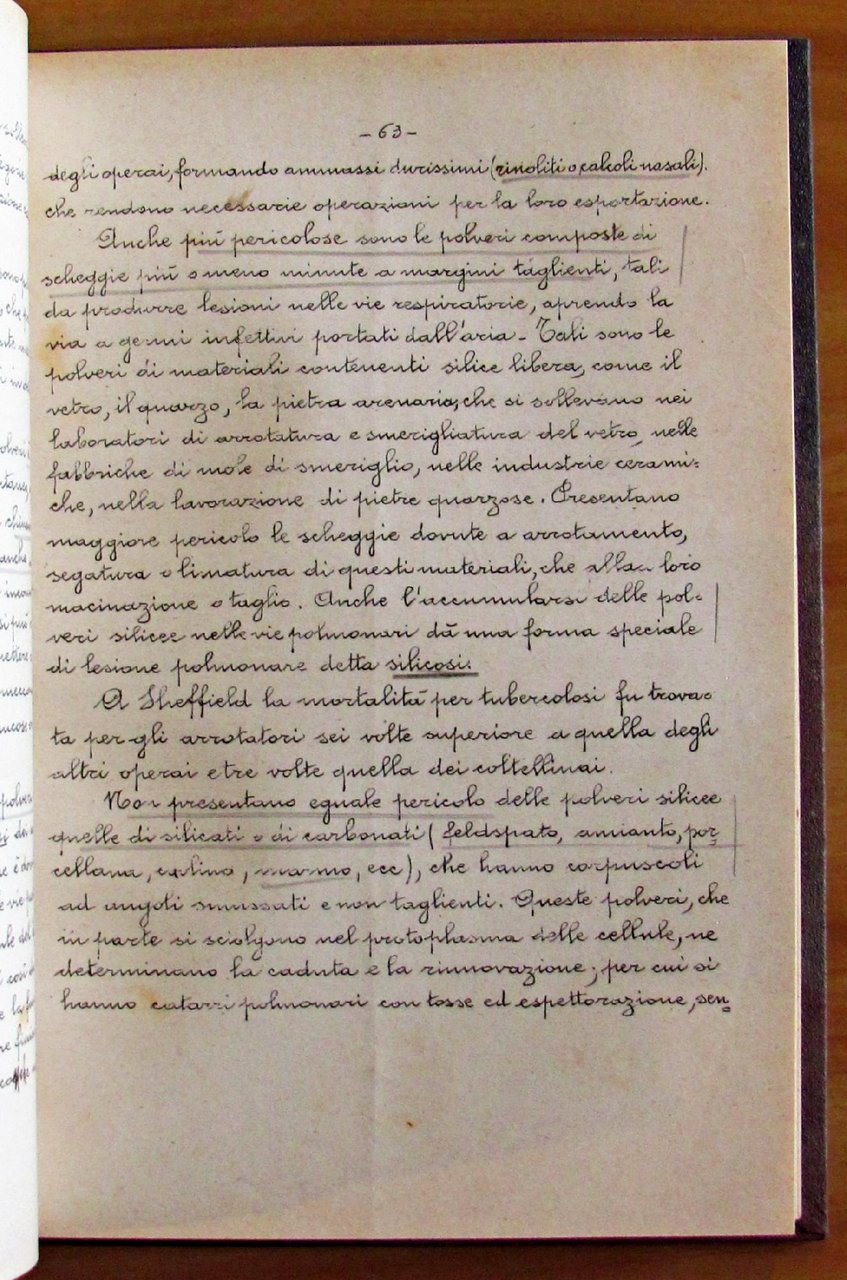 - 63 -
degli operai, formando ammassi durissimi (rinoliti o calcoli nasali).
che rendono necessarie operazioni per la loro esportazione.
Anche più pericolose sono le polveri composte di
scheggie più o meno minute a margini taglienti, tali
da produrre lesioni nelle vie respiratorie, aprendo la
via a germi infettivi portati dall'aria - Tali sono le
polveri di materiali contenenti silice libera, come il
vetro, il quarzo, la pietra arenaria, che si sollevano nei
laboratori di arrotatura e smerigliatura del vetro, nelle
fabbriche di mole di smeriglio, nelle industrie cerami=
che, nella lavorazione di pietre quarzose. Presentano
maggiore pericolo le scheggie dovute a arrotamento,
segatura o limatura di questi materiali, che alla loro
macinazione o taglio. Anche l'accumularsi delle pol=
veri silicee nelle vie polmonari dà una forma speciale
di lesione polmonare detta silicosi.
A Sheffield la mortalità per tubercolosi fu trova=
ta per gli arrotatori sei volte superiore a quella degli
altri operai e tre volte quella dei coltellinai.
Non presentano eguale pericolo delle polveri silicee
quelle di silicati o di carbonati (feldspato, amianto, por=
cellana, caolino, marmo, ecc), che hanno corpuscoli
ad angoli smussati e non taglienti. Queste polveri, che
in parte si sciolgono nel protoplasma delle cellule, ne
determinano la caduta e la rinnovazione; per cui si
hanno catarri polmonari con tosse ed espettorazione, sen=